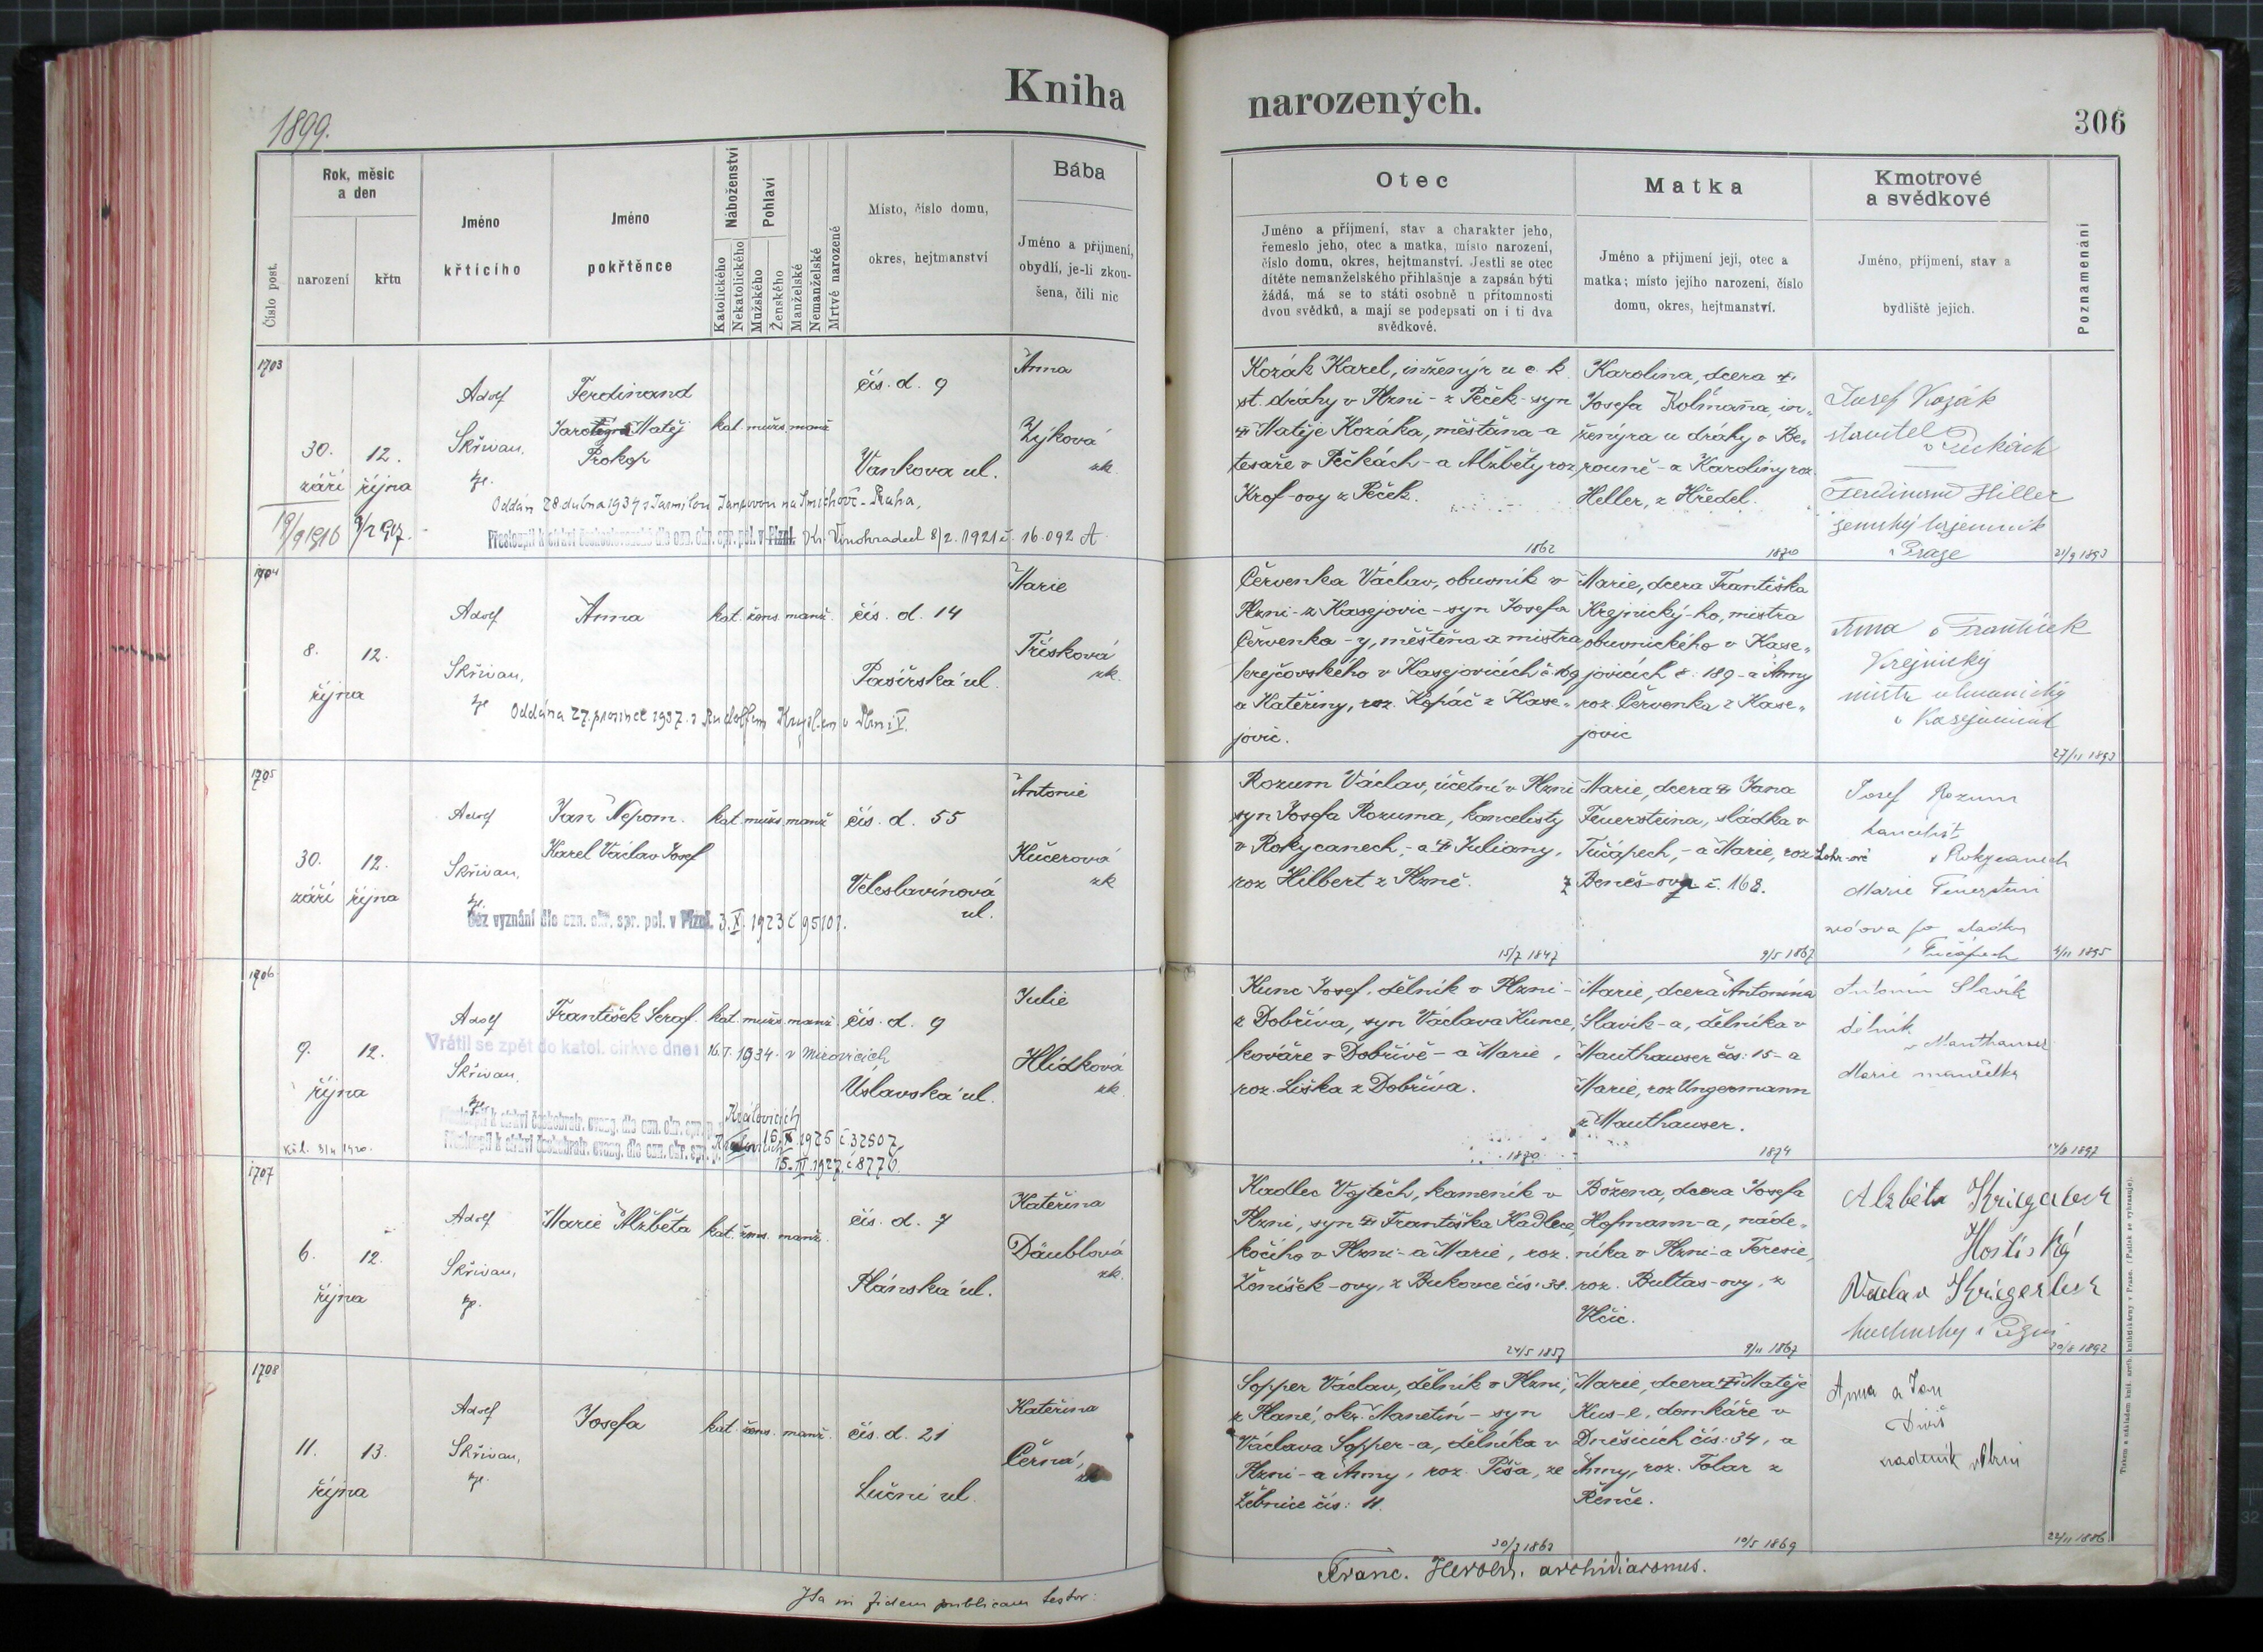 Kniha
narozených.
306
1899.
Číslo post.
Rok, měsíc
a den
narození
křtu
Jméno
křtícího
Jméno
pokřtěnce
Náboženství
Katolického
Nekatolického
Pohlaví
Mužského
Ženského
Manželské
Nemanželské
Mrtvě narozené
Místo, číslo domu,
okres, hejtmanství
Bába
Jméno a příjmení,
obydlí, je-li zkou-
šena, čili nic
Otec
Jméno a příjmení, stav a charakter jeho,
řemeslo jeho, otec a matka, místo narození,
číslo domu, okres, hejtmanství. Jestli se otec
dítěte nemanželského přihlašuje a zapsán býti
žádá, má se to státi osobně u přítomnosti
dvou svědků, a mají se podepsati on i ti dva
svědkové.
Matka
Jméno a příjmení její, otec a
matka; místo jejího narození, číslo
domu, okres, hejtmanství.
Kmotrové
a svědkové
Jméno, příjmení, stav a
bydliště jejich.
Poznamenání
1703
30.
září
12.
října
Adolf
Skřivan,
Ferdinand
Matěj
Prokop
kat. mužs. manž
čís. d. 9
Vaňkova ul.
Anna
Zýková
zk.
Oddán 28 dubna 1934 s Jarmilou na Smíchově - Praha,
Přestoupil k církvi československé dle ozn. okr. spr. pol. v Plzni. Kr. Vinohradech 8/2. 1921 č. 16.092 A
Kozák Karel, inženýr u c. k.
st. dráhy v Plzni - z Peček - syn
Matěje Kozáka, měšťana a
tesaře v Pečkách - a Alžběty roz
Krof-ovy z Peček.
1862
Karolina, dcera
Josefa Kolmana, in-
ženýra u dráhy v Be-
rouně - a Karoliny roz.
Heller, z Hředel.
1870
Josef Kozák
stavitel
v Pečkách
Ferdinand Hiller
zemský
v Praze
21/9 1893
1704
8.
října
12.
Adolf
Skřivan,
Anna
kat. žens. manž.
čís. d. 14
Pasířská ul.
Marie
Třísková
zk.
Oddána 27. prosince 1937. s Rudolfem v Plzni V.
Červenka Václav, obuvník v
Plzni - z Kasejovic - syn Josefa
Červenka - y, měštěna a mistra
krejčovského v Kasejovicích č. 169
a Kateřiny, roz. Kopáč z Kase-
jovic.
Marie, dcera Františka
Krejnický-ho, mistra
obuvnického v Kase-
jovicích č. 189 - a Anny
roz. Červenka z Kase-
jovic
Anna a František
Krejnický
mistr obuvnický
v Kasejovicích
27/11 1893
1705
30.
září
12.
října
Adolf
Skřivan,
Jan Nepom.
Karel Václav Josef
kat. mužs. manž
čís. d. 55
Veleslavínová
ul.
Antonie
Kučerová
zk
Bez vyznání dle ozn. okr. spr. pol. v Plzni. 3. X. 1923 č 95101.
Rozum Václav, účetní v Plzni
syn Josefa Rozuma, kancelisty
v Rokycanech, - a Juliany,
roz Hilbert z Plzně.
15/7 1847
Marie, dcera Jana
Feuersteina, sládka v
Tučápech, - a Marie, roz Lohr-ové
z Beneš-ova č. 168.
9/5 1867
Josef Rozum
kancelist
v Rokycanech
Marie Feuerstein
vdova po sládku
v Tučápech
1706
9.
října
12.
Adolf
Skřivan,
František Seraf.
kat. mužs. manž.
čís. d. 9
Úslavská ul.
Julie
Hlídková
zk.
Vrátil se zpět do katol. církve dne: 16. 7. 1934. v Mirovicích
Přestoupil k církvi českobratr. evang. dle ozn. okr. spr. p. Královicích
15. X. 1925 č 32507
Přestoupil k církvi českobratr. evang. dle ozn. okr. spr. p.
15. II. 1927. č 8776.
Kunc Josef, dělník v Plzni -
z Dobříva, syn Václava Kunce,
kováře v Dobřívě - a Marie,
roz. Liška z Dobříva.
1870
Marie, dcera Antonína
Slavík-a, dělníka v
Mauthauser čís: 15 - a
Marie, roz Ungermann
z Mauthauser.
1874
Antonín Slavík
dělník
v Mauthauser
Marie manželka
1707
6.
října
12.
Adolf
Skřivan,
Marie Alžběta
kat. žens. manž.
čís. d. 7
Plánská ul.
Kateřina
Däublová
zk.
Kadlec Vojtěch, kameník v
Plzni, syn Františka Kadlece,
kočího v Plzni - a Marie, roz.
Ženíšek-ovy, z Bukovce čís: 38.
24/5 1857
Božena, dcera Josefa
Hofmann-a, náde-
níka v Plzni - a Teresie,
roz. Bultas-ovy, z
Vlčic.
9/11 1867
Alžběta
Hostiský
Václav
v Plzni
20/8 1892
1708
11.
října
13.
Adolf
Skřivan,
Josefa
kat. žens. manž.
čís. d. 21
Luční ul.
Kateřina
Černá,
Sopper Václav, dělník v Plzni,
z Plané, okr. Manetín - syn
Václava Sopper-a, dělníka v
Plzni - a Anny, roz. Píša, ze
Žebnice čís: 11.
Marie, dcera Matěje
Kus-e, domkáře v
Dnešicích čís: 34, a
Anny, roz. Tolar z
Řenče.
10/5 1869
Anna a Jan
Diviš
nádeník v Plzni
22/11 1886
Ita in fidem publicam testor:
Franc. Herold, archidiaconus.